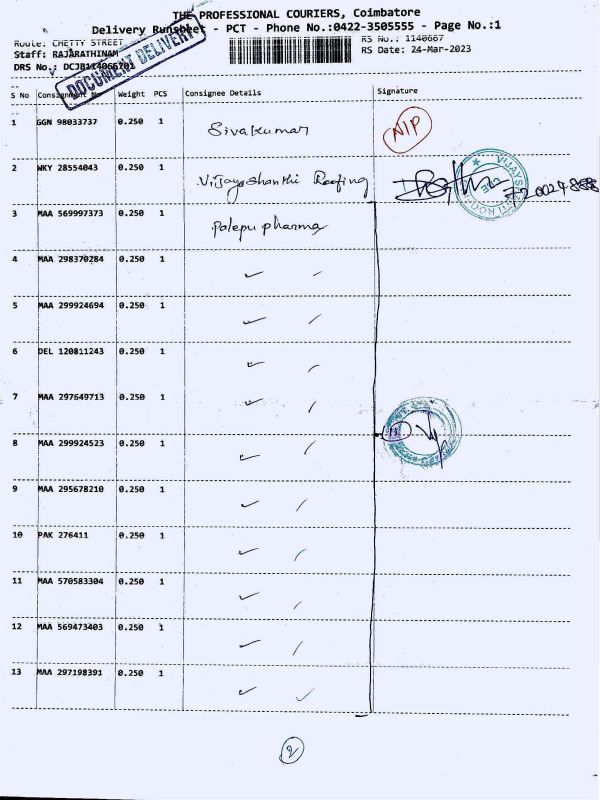 THE PROFESSIONAL COURIERS, Coimbatore
Delivery Runsheet - PCT - Phone No.:0422-3505555 - Page No.:1
Route: CHETTY STREET RS No.: 1140667
Staff: RAJARATHINAM RS Date: 24-Mar-2023
DRS No.: DCJB114066701
DOCUMENT DELIVERY
S No Consignment No Weight PCS Consignee Details Signature
1 GGN 98033737 0.250 1 Sivakumar NIP
2 WKY 28554043 0.250 1 Vijayashanthi Roofing
3 MAA 569997373 0.250 1 Palepu pharma
4 MAA 298370284 0.250 1
5 MAA 299924694 0.250 1
6 DEL 120811243 0.250 1
7 MAA 297649713 0.250 1
8 MAA 299924523 0.250 1
9 MAA 295678210 0.250 1
10 PAK 276411 0.250 1
11 MAA 570583304 0.250 1
12 MAA 569473403 0.250 1
13 MAA 297198391 0.250 1
2